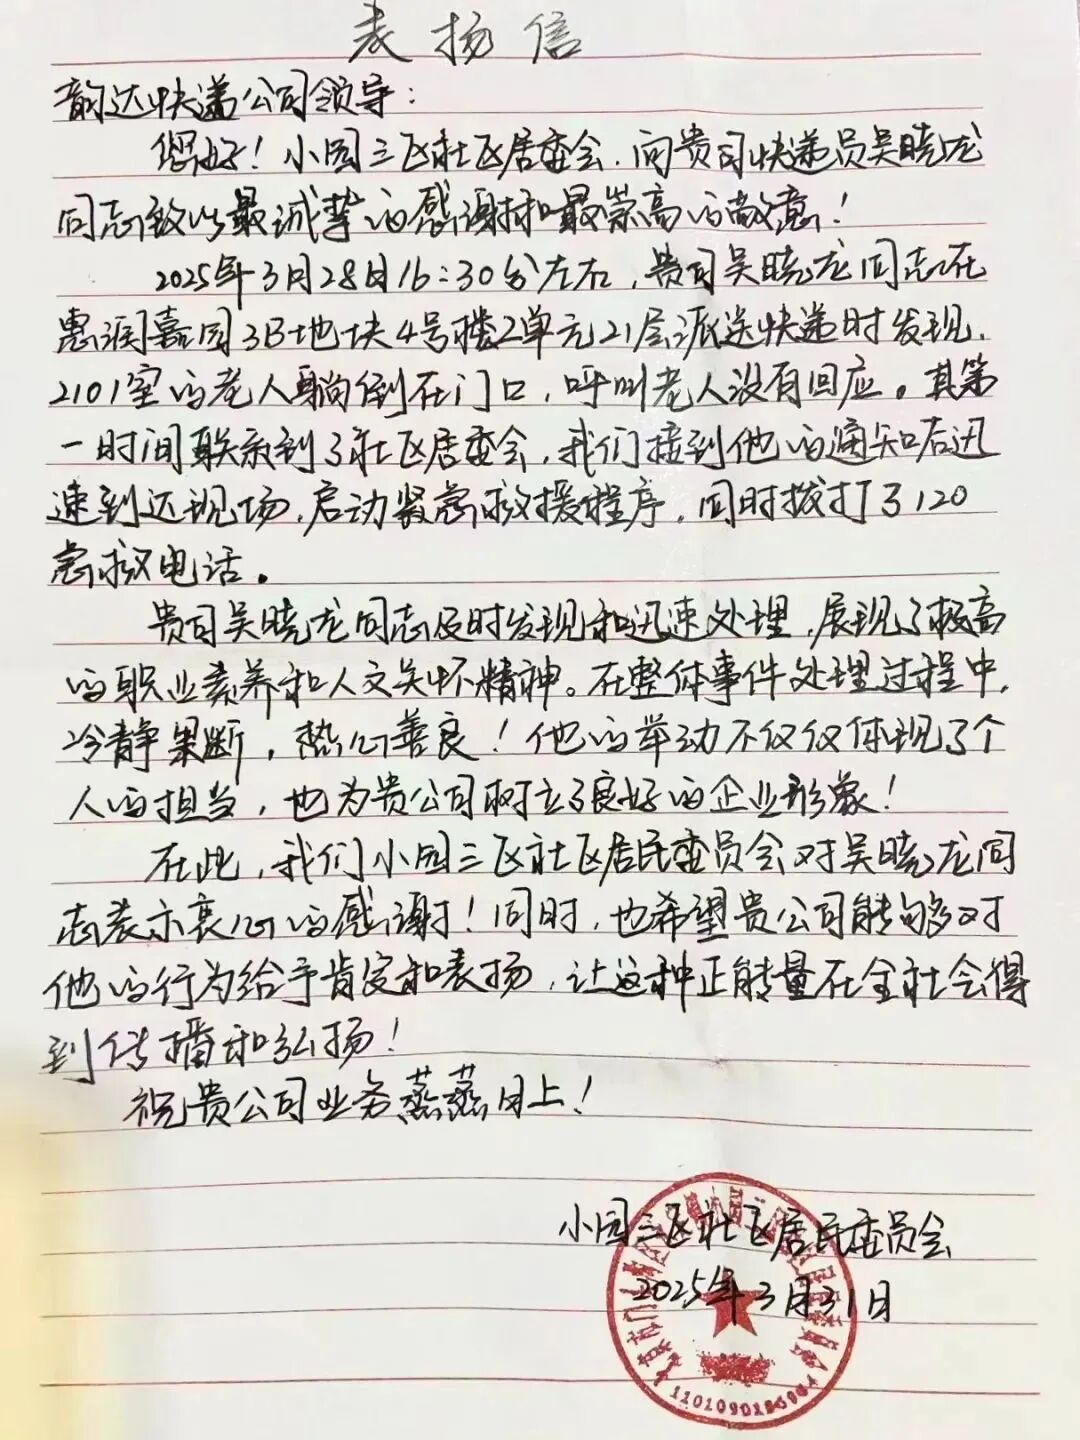 表扬信
韵达快递公司领导：
您好！小园三区社区居委会，向贵司快递员吴晓龙
同志致以最诚挚的感谢和最崇高的敬意！
2025年3月28日16：30分左右，贵司吴晓龙同志在
惠润嘉园3B地块4号楼2单元21层派送快递时发现，
2101室的老人躺倒在门口，呼叫老人没有回应。其第
一时间联系到了社区居委会，我们接到他的通知后迅
速到达现场，启动紧急救援程序，同时拨打了120
急救电话。
贵司吴晓龙同志及时发现和迅速处理，展现了极高
的职业素养和人文关怀精神。在整体事件处理过程中，
冷静果断，热心善良！他的举动不仅仅体现了个
人的担当，也为贵公司树立了良好的企业形象！
在此，我们小园三区社区居民委员会对吴晓龙同
志表示衷心的感谢！同时，也希望贵公司能够对
他的行为给予肯定和表扬，让这种正能量在全社会得
到传播和弘扬！
祝贵公司业务蒸蒸日上！
小园三区社区居民委员会
2025年3月31日